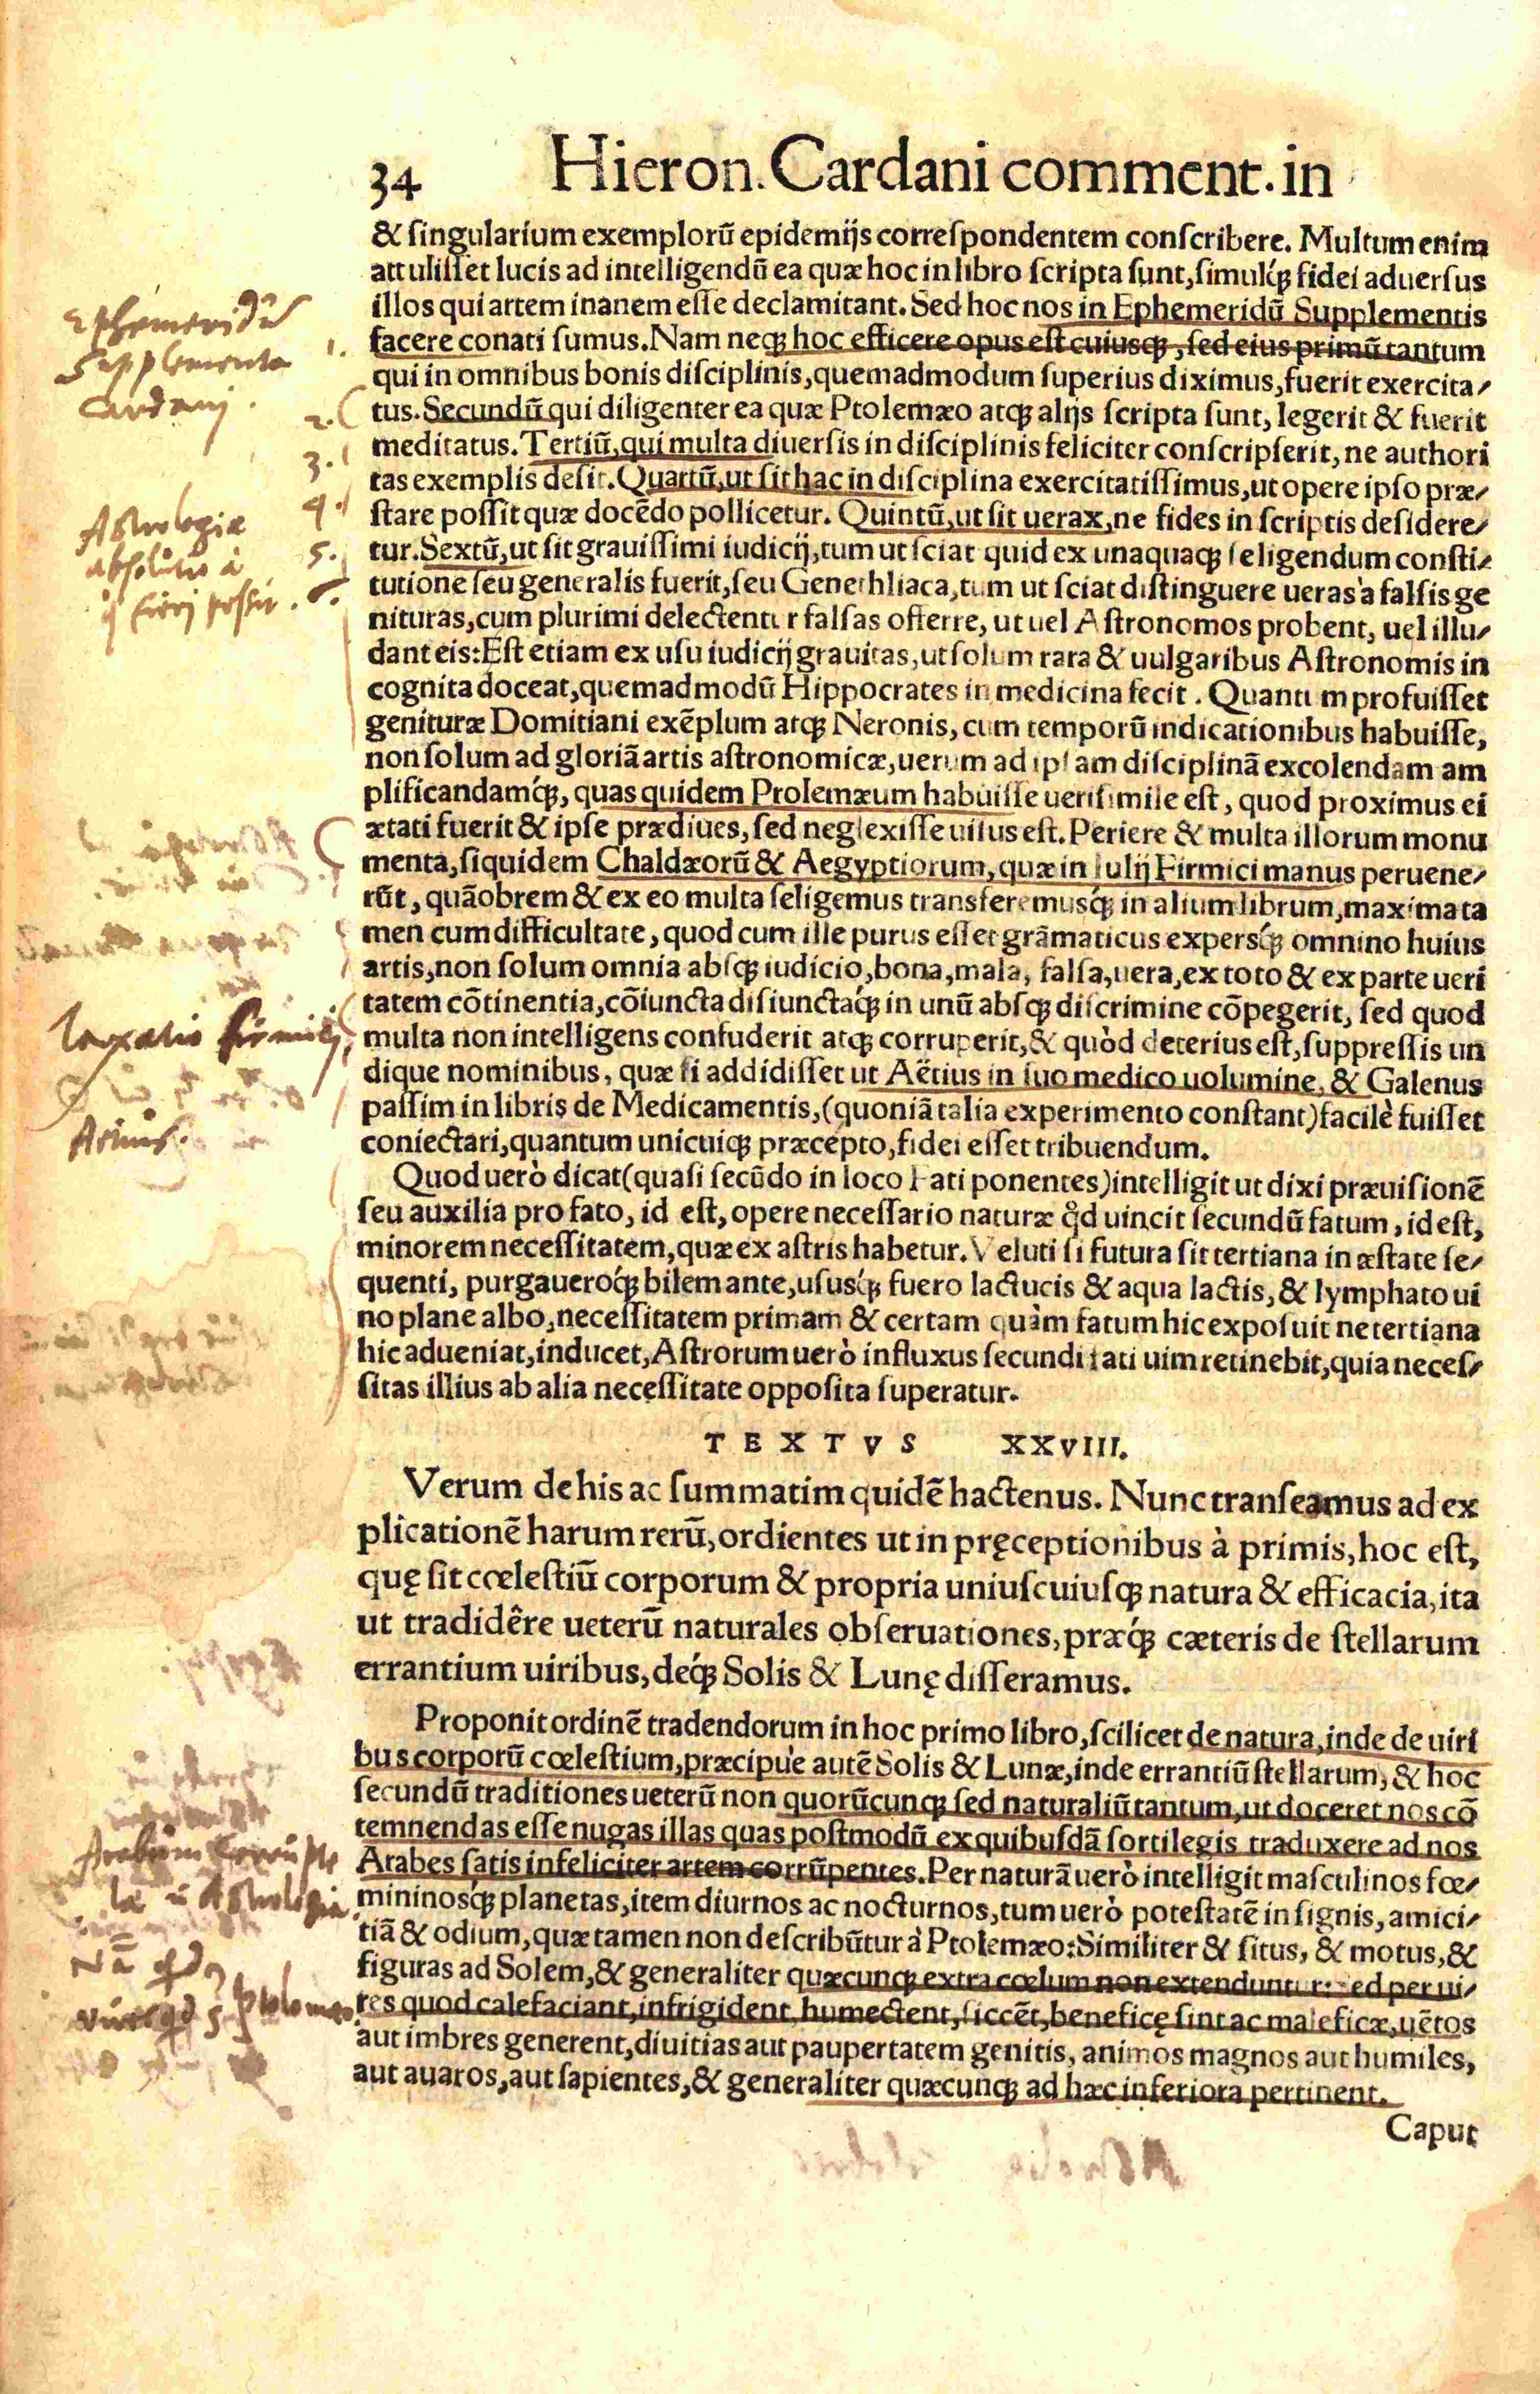 34 Hieron. Cardani comment. in
& ſingularium exemplorũ epidemijs correſpondentem conſcribere. Multum enim
attuliſſet lucis ad intelligendũ ea quæ hoc in libro ſcripta ſunt, ſimulq́ꝫ fidei aduerſus
illos qui artem inanem eſſe declamitant. Sed hoc nos in Ephemeridũ Supplementis
facere conati ſumus. Nam neqꝫ hoc efficere opus eſt cuiusqꝫ, ſed eius primũ tantum
qui in omnibus bonis diſciplinis, quemadmodum ſuperius diximus, fuerit exercita/
tus. Secundũ qui diligenter ea quæ Ptolemæo atqꝫ alijs ſcripta ſunt, legerit & fuerit
meditatus. Tertiũ, qui multa diuerſis in diſciplinis feliciter conſcripſerit, ne authori
tas exemplis deſit. Quartũ, ut ſit hac in diſciplina exercitatiſſimus, ut opere ipſo præ/
ſtare poſſit quæ docẽdo pollicetur. Quintũ, ut ſit uerax, ne fides in ſcriptis deſidere/
tur. Sextũ, ut ſit grauiſſimi iudicij, tum ut ſciat quid ex unaquaqꝫ ſeligendum conſti/
tutione ſeu generalis fuerit, ſeu Genethliaca, tum ut ſciat diſtinguere ueras à falſis ge
nituras, cum plurimi delectentur falſas offerre, ut uel Aſtronomos probent, uel illu/
dant eis: Eſt etiam ex uſu iudicij grauitas, ut ſolum rara & uulgaribus Aſtronomis in
cognita doceat, quemadmodũ Hippocrates in medicina fecit. Quantum profuiſſet
genituræ Domitiani exẽplum atqꝫ Neronis, cum temporũ indicationibus habuiſſe,
non ſolum ad gloriã artis aſtronomicæ, uerum ad ipſam diſciplinã excolendam am
plificandamq́ꝫ, quas quidem Ptolemæum habuiſſe ueriſimile eſt, quod proximus ei
ætati fuerit & ipſe prædiues, ſed neglexiſſe uiſus eſt. Periere & multa illorum monu
menta, ſiquidem Chaldæorũ & Aegyptiorum, quæ in Iulij Firmici manus peruene/
rũt, quãobrem & ex eo multa ſeligemus transferemusq́ꝫ in alium librum, maxima ta
men cum difficultate, quod cum ille purus eſſet grãmaticus expersq́ꝫ omnino huius
artis, non ſolum omnia absqꝫ iudicio, bona, mala, falſa, uera, ex toto & ex parte ueri
tatem cõtinentia, cõiuncta diſiunctaq́ꝫ in unũ absqꝫ diſcrimine cõpegerit, ſed quod
multa non intelligens confuderit atqꝫ corruperit, & quòd deterius eſt, ſuppreſſis un
dique nominibus, quæ ſi addidiſſet ut Aëtius in ſuo medico uolumine, & Galenus
paſſim in libris de Medicamentis, (quoniã talia experimento conſtant) facilè fuiſſet
coniectari, quantum unicuiqꝫ præcepto, fidei eſſet tribuendum.
Quod uerò dicat (quaſi ſecũdo in loco Fati ponentes) intelligit ut dixi præuiſionẽ
ſeu auxilia pro fato, id eſt, opere neceſſario naturæ qd̓ uincit ſecundũ fatum, id eſt,
minorem neceſſitatem, quæ ex aſtris habetur. Veluti ſi futura ſit tertiana in æſtate ſe/
quenti, purgaueroq́ꝫ bilem ante, uſusq́ꝫ fuero lactucis & aqua lactis, & lymphato ui
no plane albo, neceſſitatem primam & certam quàm fatum hic expoſuit ne tertiana
hic adueniat, inducet, Aſtrorum uerò influxus ſecundi fati uim retinebit, quia neceſ/
ſitas illius ab alia neceſſitate oppoſita ſuperatur.
TEXTVS XXVIII.
Verum de his ac ſummatim quidẽ hactenus. Nunc tranſeamus ad ex
plicationẽ harum rerũ, ordientes ut in pręceptionibus à primis, hoc eſt,
quę ſit cœleſtiũ corporum & propria uniuſcuiuſqꝫ natura & efficacia, ita
ut tradidêre ueterũ naturales obſeruationes, præq́ꝫ cæteris de ſtellarum
errantium uiribus, deq́ꝫ Solis & Lunę differamus.
Proponit ordinẽ tradendorum in hoc primo libro, ſcilicet de natura, inde de uiri
bus corporũ cœleſtium, præcipuè autẽ Solis & Lunæ, inde errantiũ ſtellarum, & hoc
ſecundũ traditiones ueterũ non quorũcunqꝫ ſed naturaliũ tantum, ut doceret nos cõ
temnendas eſſe nugas illas quas poſtmodũ ex quibuſdã ſortilegis traduxere ad nos
Arabes ſatis infeliciter artem corrũpentes. Per naturã uerò intelligit maſculinos fœ/
mininosq́ꝫ planetas, item diurnos ac nocturnos, tum uerò poteſtatẽ in ſignis, amici/
tiã & odium, quæ tamen non deſcribũtur à Ptolemæo: Similiter & ſitus, & motus, &
figuras ad Solem, & generaliter quæcunqꝫ extra cœlum non extenduntur: ſed per ui/
res quod calefaciant, infrigident, humectent, ſiccẽt, beneficę ſint ac maleficæ, uẽtos
aut imbres generent, diuitias aut paupertatem genitis, animos magnos aut humiles,
aut auaros, aut ſapientes, & generaliter quæcunqꝫ ad hæc inferiora pertinent.
Caput
Ephemeridũ
Supplementa
Cardani.
1.
2.
3.
4.
5.
6.
Astrologiæ
absolutio à
fieri possit.
Taxatio Firmici
Arabum
Astrologia